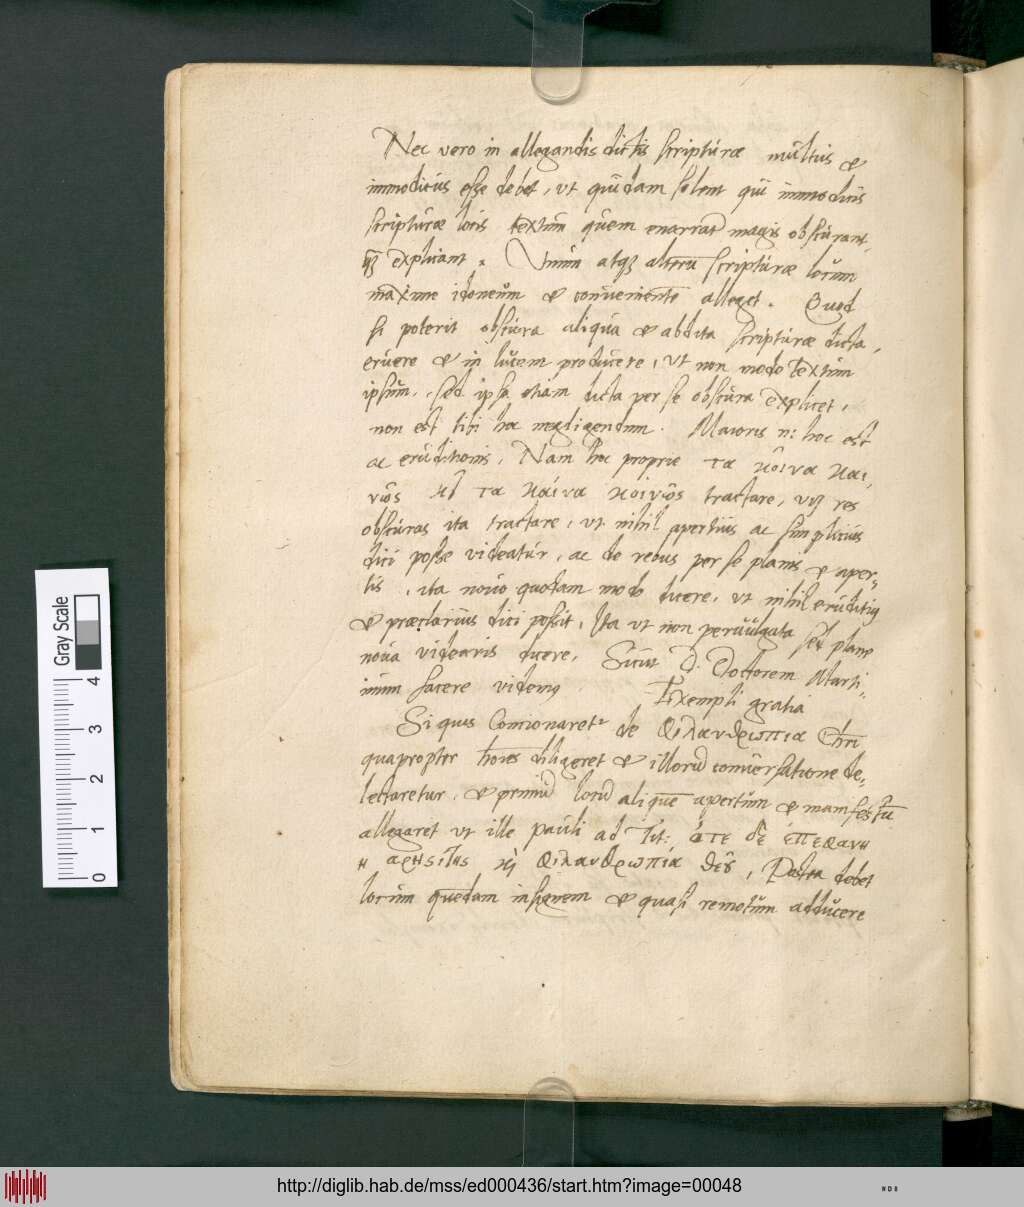 Nec vero in allegandis dictis scripturæ multus et
immodicus esse debet, ut quidam solent qui immodicis
scripturæ locis textum quem enarrant magis obscurant,
qȝ explicant. Unum atqȝ alterū scripturæ locum
maxime idoneum et convenientē alleget. Quod
si poterit obscura aliqua et abdita scripturæ dicta,
eruere et in lucem producere, ut non modo textum
ipsum, sed ipsa etiam dicta per se obscura explicet,
non est tibi hoc negligendum. Maioris n: hoc est
ac eruditionis, Nam hoc proprie τα κοινα και-
νῶς κὶ τα καίνα κοινῶς tractare, vȝ res
obscuras ita tractare, ut nihil apertius ac simplicius
dici posse videatur, ac de rebus per se planis et aper-
tis, ita novo quodam modo dicere, ut nihil eruditiꝰ
et præclarius dici possit, Ita ut non pervulgata sed plane
nova videaris dicere, Sicut D. Doctorem Marti-
num facere videmꝰ Exempli gratia
Si quis Concionaretr de φιλανθρωπια Chri
quapropter hōies diligeret et illorū conversatione de-
lectaretur, et primū locū aliquē apertum et manifestū
allegaret ut ille pauli ad Tit: ὁτε δὲ επεφανη
η αρησιτης κὶ φιλανθρωπία θεȣ, Postea debet
locum quendam insignem et quasi remotum adducere
Gray Scale
0 1 2 3 4
http://diglib.hab.de/mss/ed000436/start.htm?image=00048